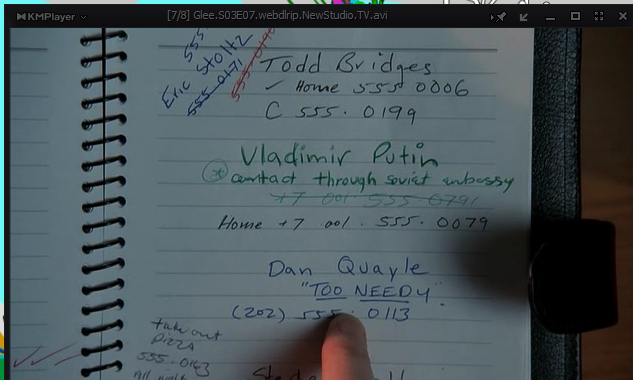 KMPlayer
[7/8] Glee.S03E07.webdrip.NewStudio.TV.avi
555
Eric Stoltz
555-0171
Todd Bridges
✓ Home 555 0006
C 555.0199
Vladimir Putin
* contact through soviet embassy
+7 001 555 0791
Home +7 001. 555. 0079
Dan Quayle
"TOO NEEDY".
(202) 555. 0113
take out
PIZZA
555-0143
All night